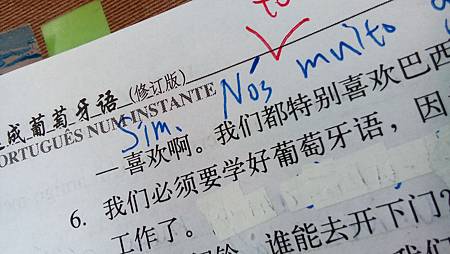 成葡萄牙语(修订版)
PORTUGUÊS NUM INSTANTE
Sim. Nós muito
—喜欢啊。我们都特别喜欢巴西
6. 我们必须要学好葡萄牙语，因
工作了。
谁能去开下门？